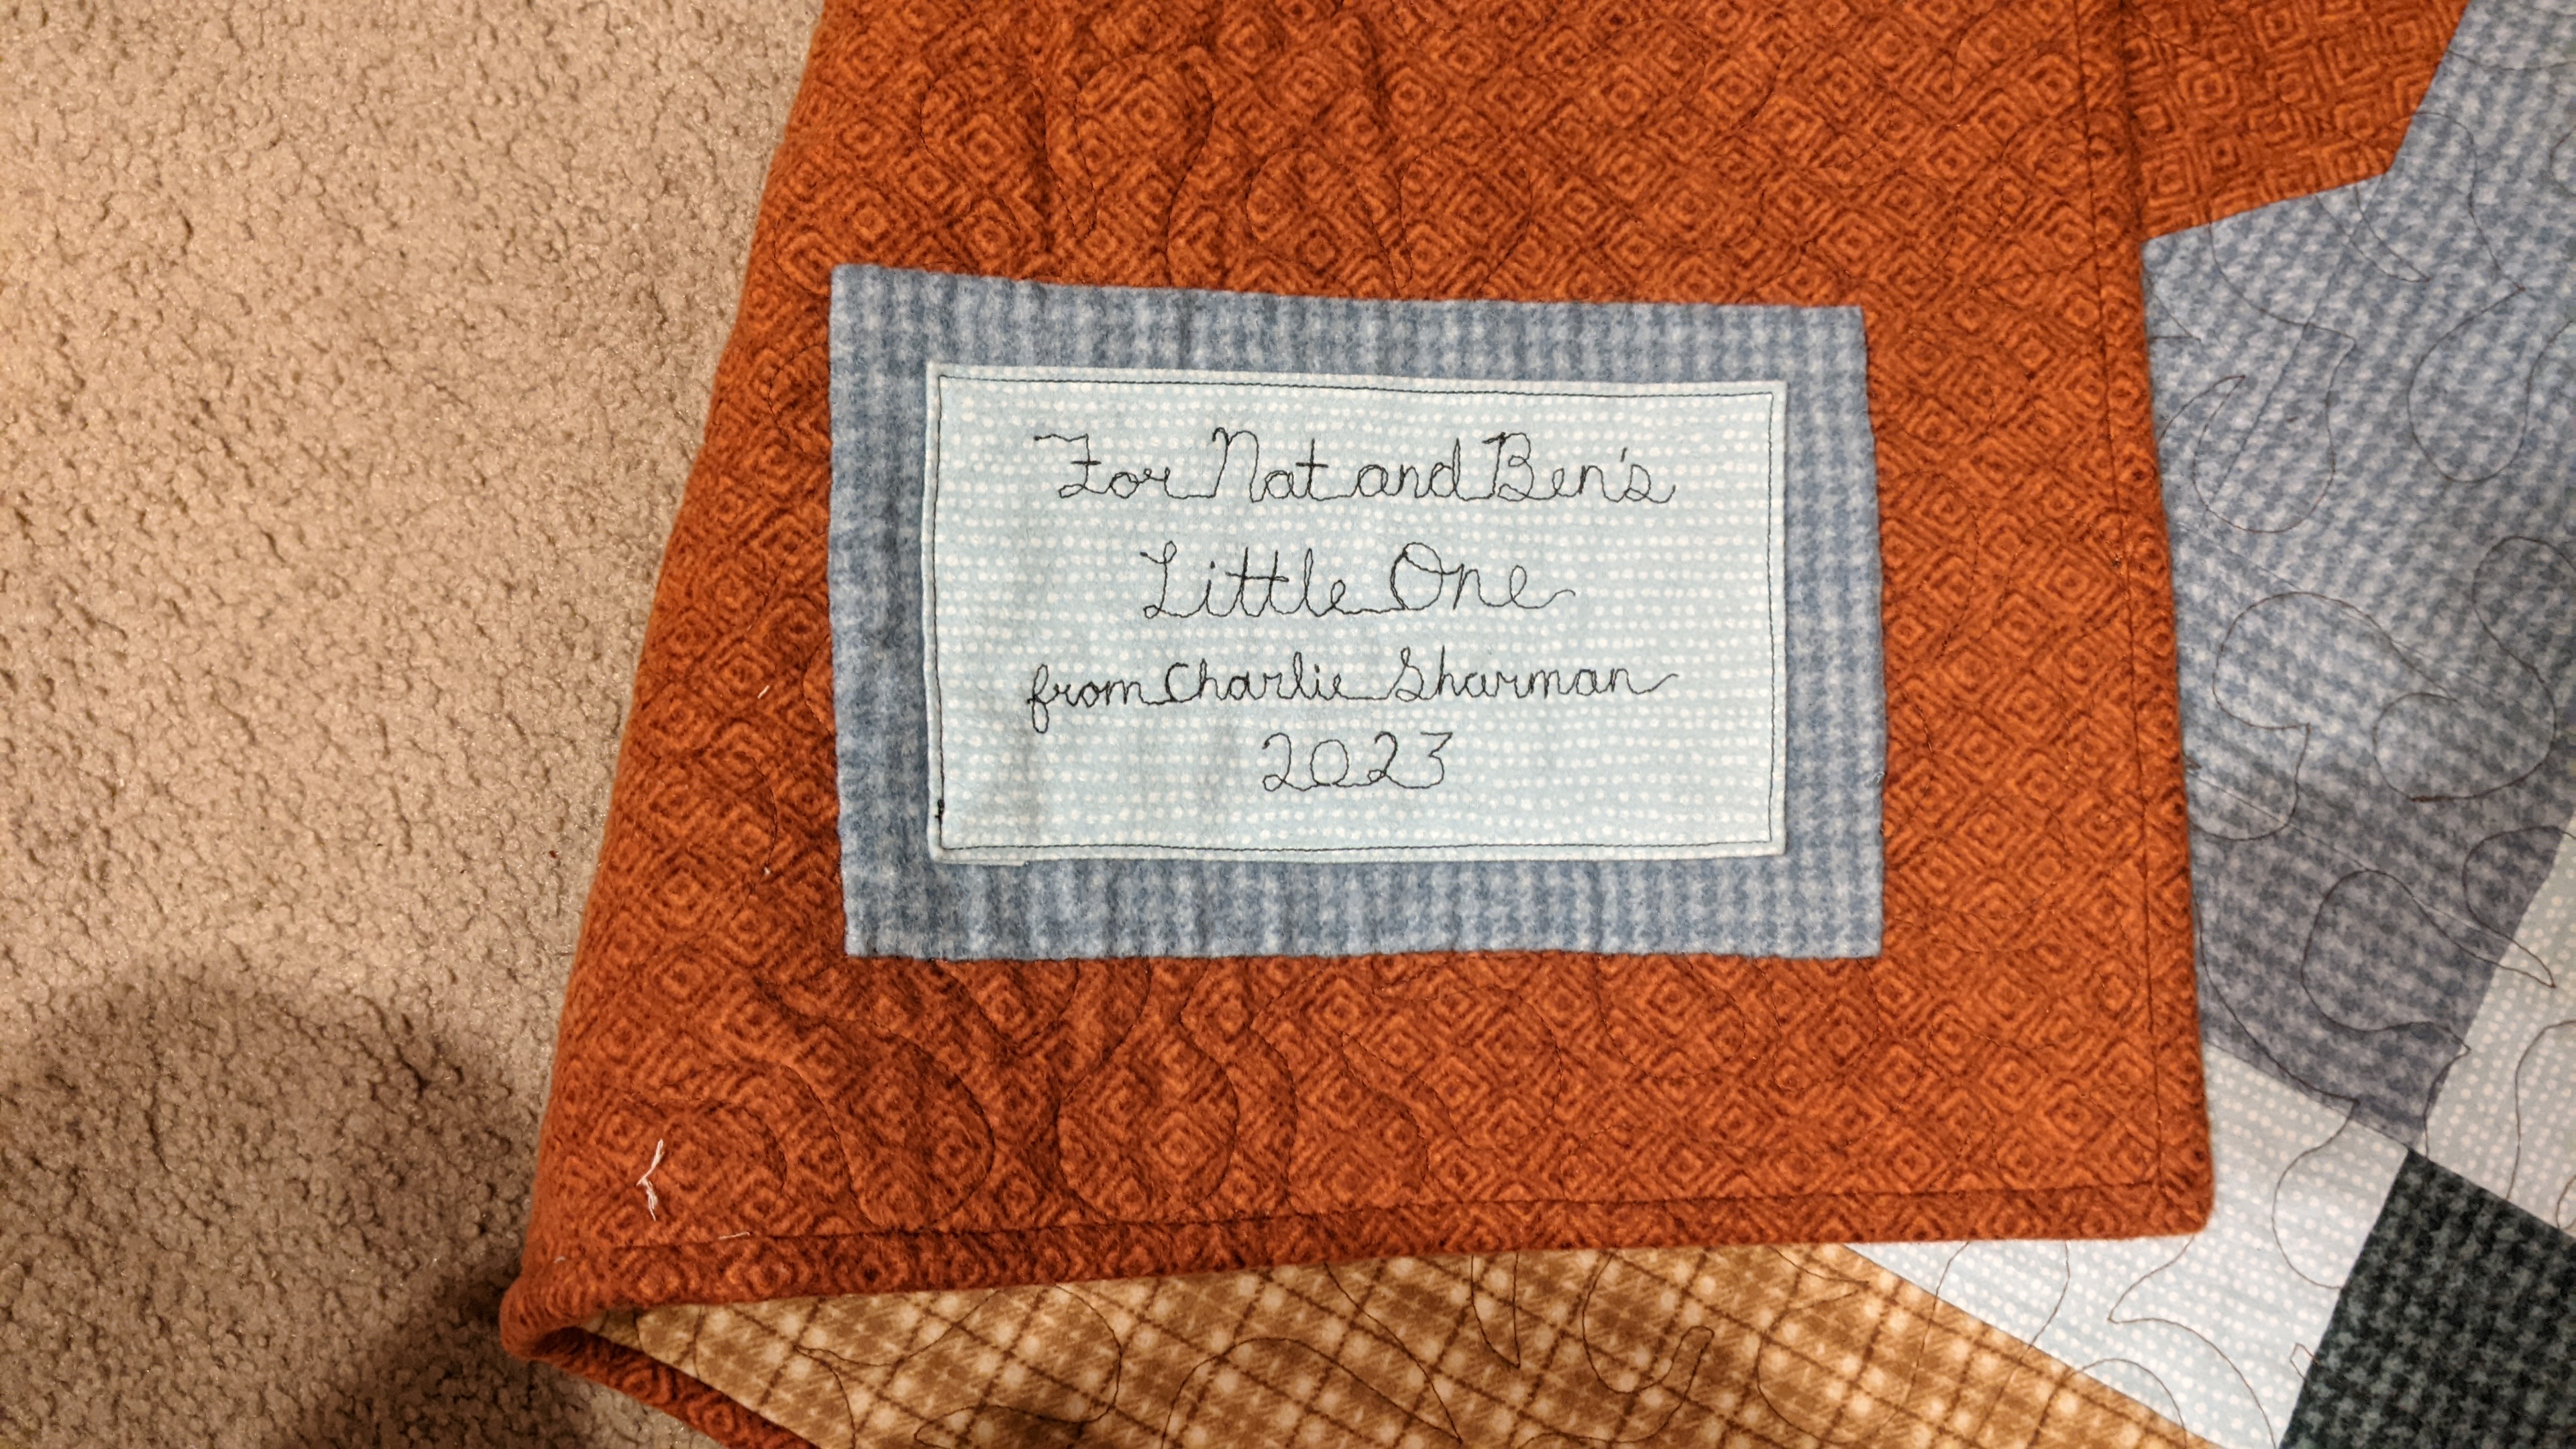 For Nat and Ben's
Little One
from Charlie Sharman
2023